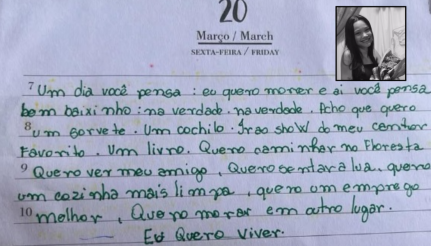 20
Março / March
SEXTA-FEIRA / FRIDAY
7 Um dia você pensa: eu quero morrer e aí você pensa
bem baixinho: na verdade. na verdade. Acho que quero
8 um sorvete. Um cochilo. Ir ao show do meu cantor
Favorito. Um livro. Quero caminhar na floresta
9 Quero ver meu amigo, Quero sentar a lua, quero
um cozinha mais limpa, quero um emprego
10 melhor, Quero morar em outro lugar.
Eu Quero Viver.